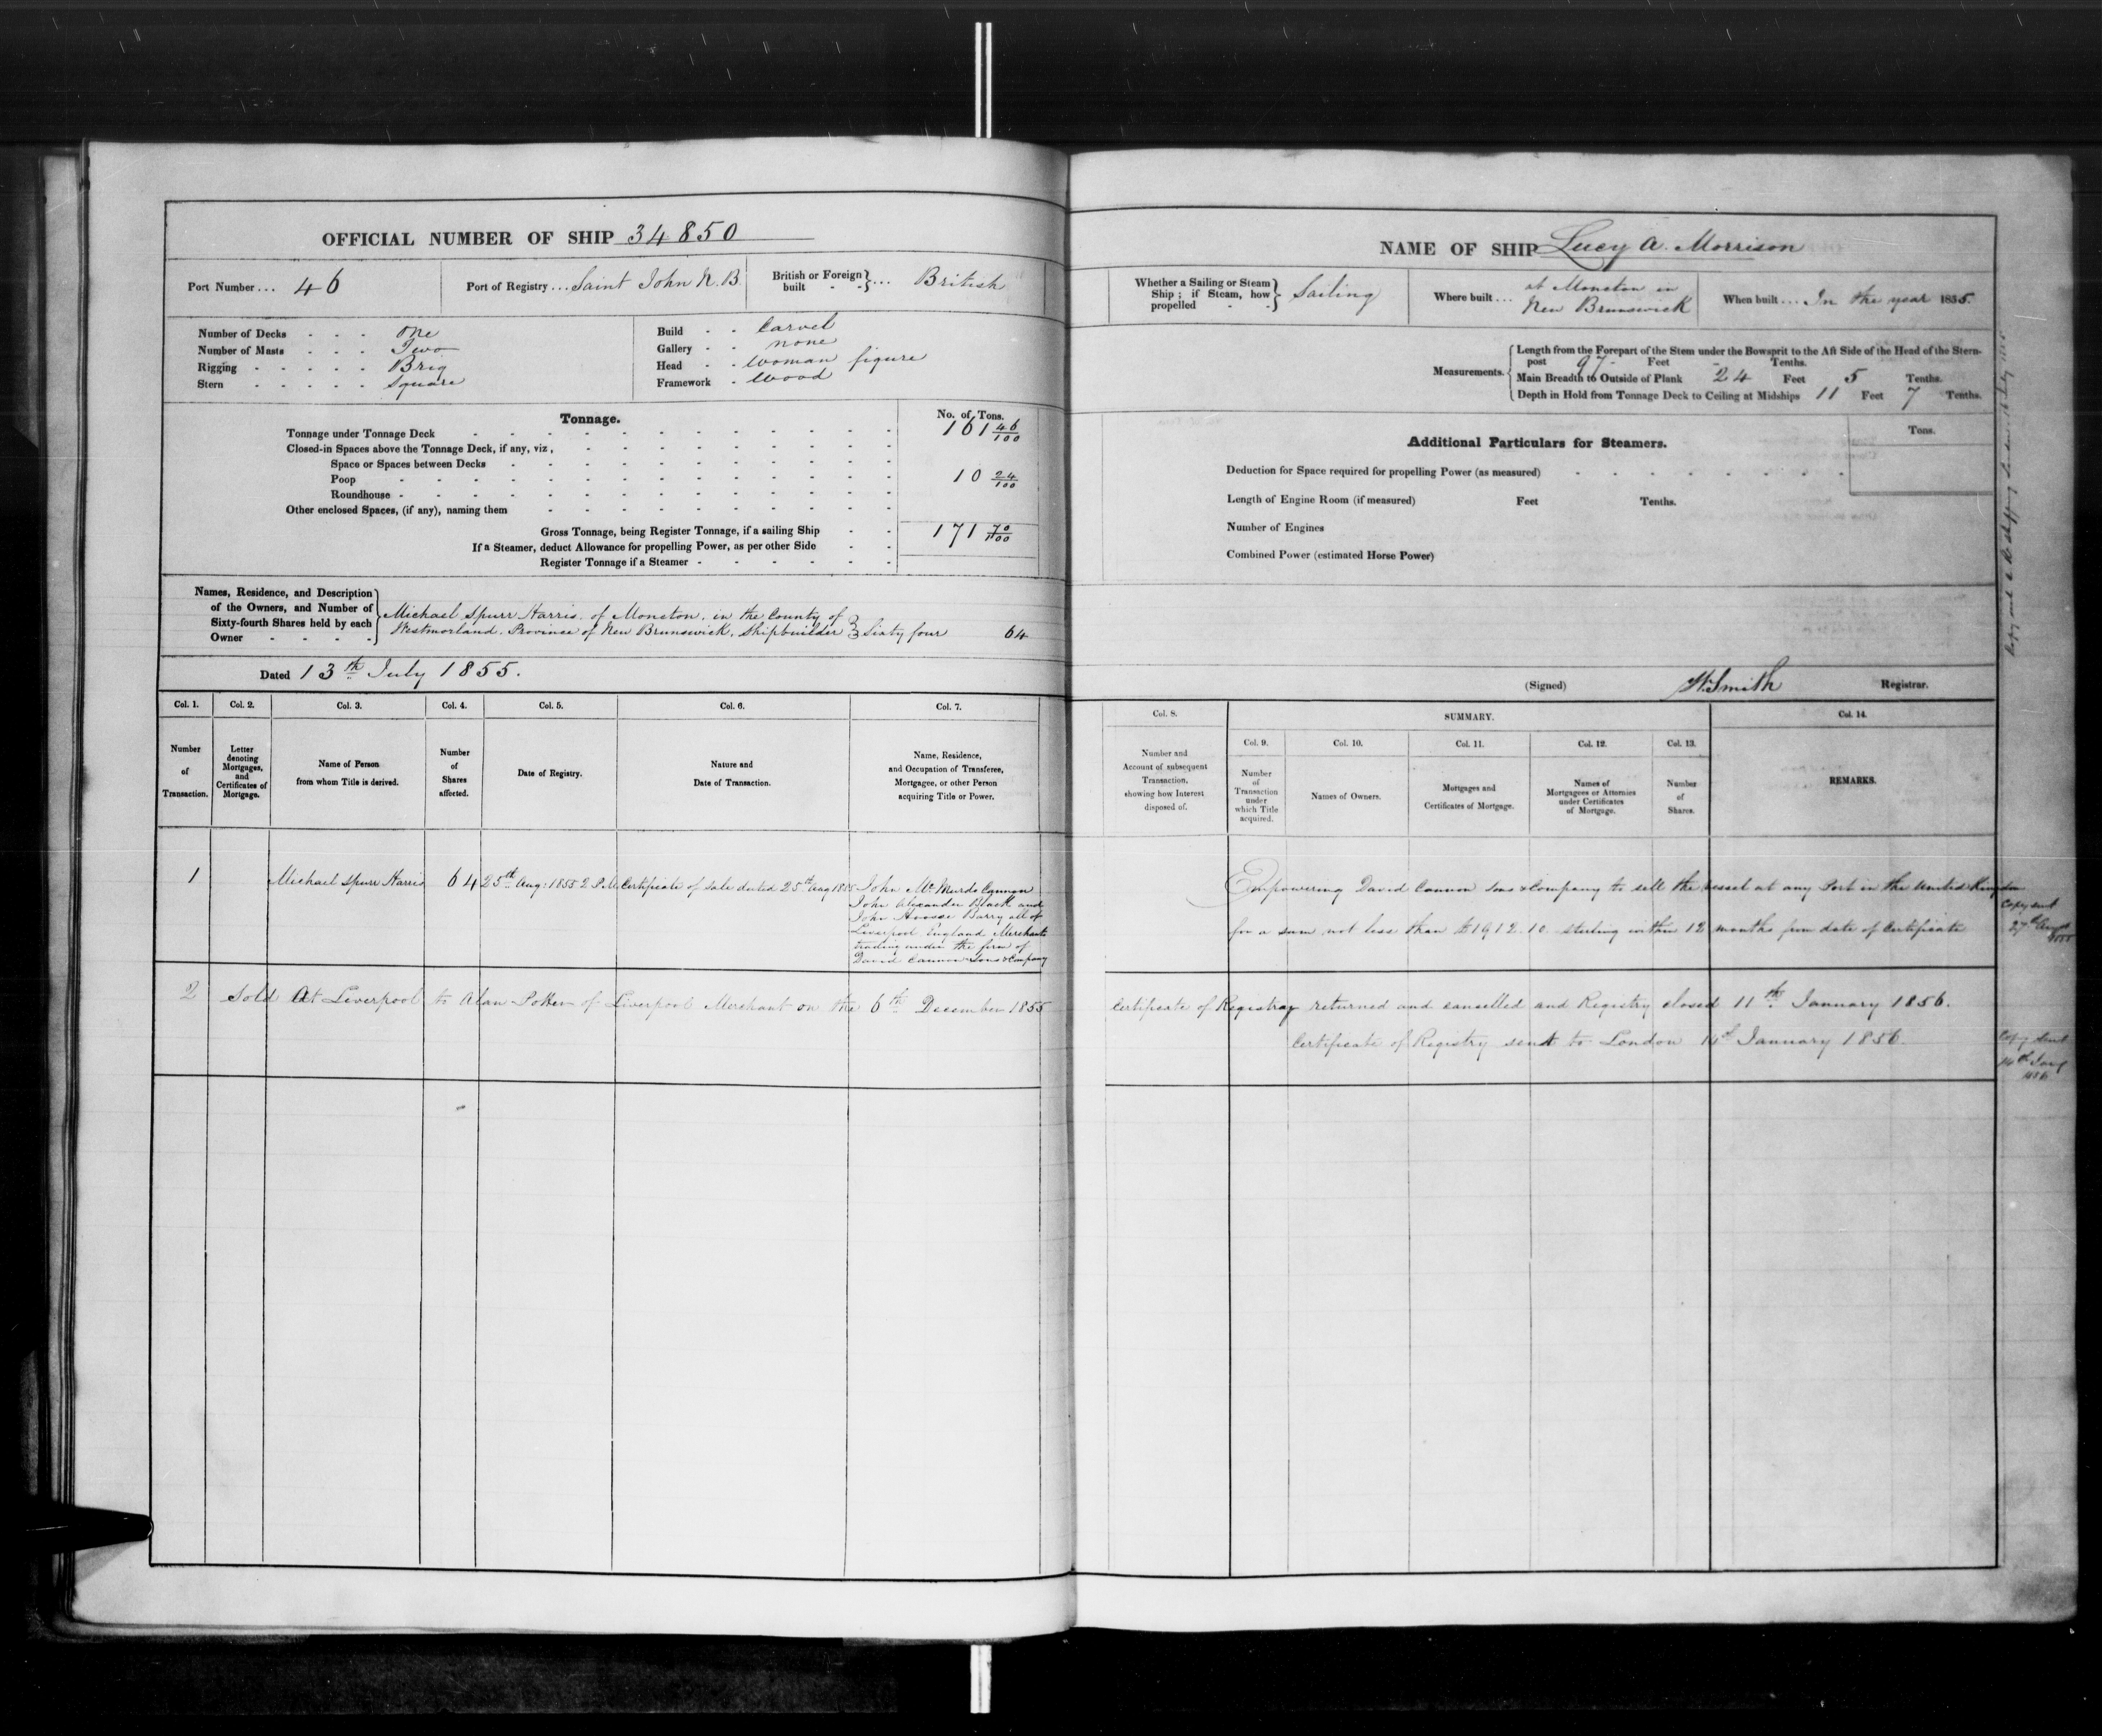 OFFICIAL NUMBER OF SHIP 34850
Port Number ... 46
Port of Registry ... Saint John N.B.
British or Foreign built - - } ... British
Number of Decks - - - One
Number of Masts - - - Two
Rigging - - - - - Brig
Stern - - - - - Square
Build - - Carvel
Gallery - - none
Head - - Woman figure
Framework - Wood
Tonnage.
No. of Tons.
Tonnage under Tonnage Deck 161 46/100
Closed-in Spaces above the Tonnage Deck, if any, viz,
Space or Spaces between Decks
Poop 10 24/100
Roundhouse
Other enclosed Spaces, (if any), naming them
Gross Tonnage, being Register Tonnage, if a sailing Ship 171 70/100
If a Steamer, deduct Allowance for propelling Power, as per other Side
Register Tonnage if a Steamer
Names, Residence, and Description
of the Owners, and Number of
Sixty-fourth Shares held by each
Owner
Michael Spurr Harris of Moncton, in the County of
Westmorland, Province of New Brunswick, Shipbuilder } Sixty four 64
Dated 13th July 1855.
Col. 1. Col. 2. Col. 3. Col. 4. Col. 5. Col. 6. Col. 7.
Number of Transaction.
Letter denoting Mortgages, and Certificates of Mortgage.
Name of Person from whom Title is derived.
Number of Shares affected.
Date of Registry.
Nature and Date of Transaction.
Name, Residence, and Occupation of Transferee, Mortgagee, or other Person acquiring Title or Power.
1 Michael Spurr Harris 64 25th Aug: 1855 2 P.M. Certificate of Sale dated 25th Aug 1855
John McMurdo Cannon
John Alexander Black and
John Barry all of
Liverpool England Merchants
trading under the firm of
David Cannon Sons & Company
2 Sold At Liverpool to Alan Potter of Liverpool Merchant on the 6th December 1855
NAME OF SHIP Lucy A. Morrison
Whether a Sailing or Steam Ship; if Steam, how propelled - - } Sailing
Where built ... at Moncton in
New Brunswick
When built ... In the year 1855.
Measurements.
Length from the Forepart of the Stem under the Bowsprit to the Aft Side of the Head of the Stern-
post 97 Feet - Tenths.
Main Breadth to Outside of Plank 24 Feet 5 Tenths.
Depth in Hold from Tonnage Deck to Ceiling at Midships 11 Feet 7 Tenths.
Additional Particulars for Steamers.
Tons.
Deduction for Space required for propelling Power (as measured)
Length of Engine Room (if measured) Feet Tenths.
Number of Engines
Combined Power (estimated Horse Power)
(Signed) W. Smith Registrar.
Col. 8. SUMMARY. Col. 14.
Col. 9. Col. 10. Col. 11. Col. 12. Col. 13.
Number and Account of subsequent Transaction, showing how Interest disposed of.
Number of Transaction under which Title acquired.
Names of Owners.
Mortgages and Certificates of Mortgage.
Names of Mortgagees or Attornies under Certificates of Mortgage.
Number of Shares.
REMARKS.
Empowering David Cannon Sons & Company to sell the vessel at any Port in the United Kingdom
for a sum not less than £1912.10 sterling within 12 months from date of Certificate
Copy sent
27th Augt
1855
Certificate of Registry returned and cancelled and Registry closed 11th January 1856.
Certificate of Registry sent to London January 1856
Copy sent
14th Jany
1856